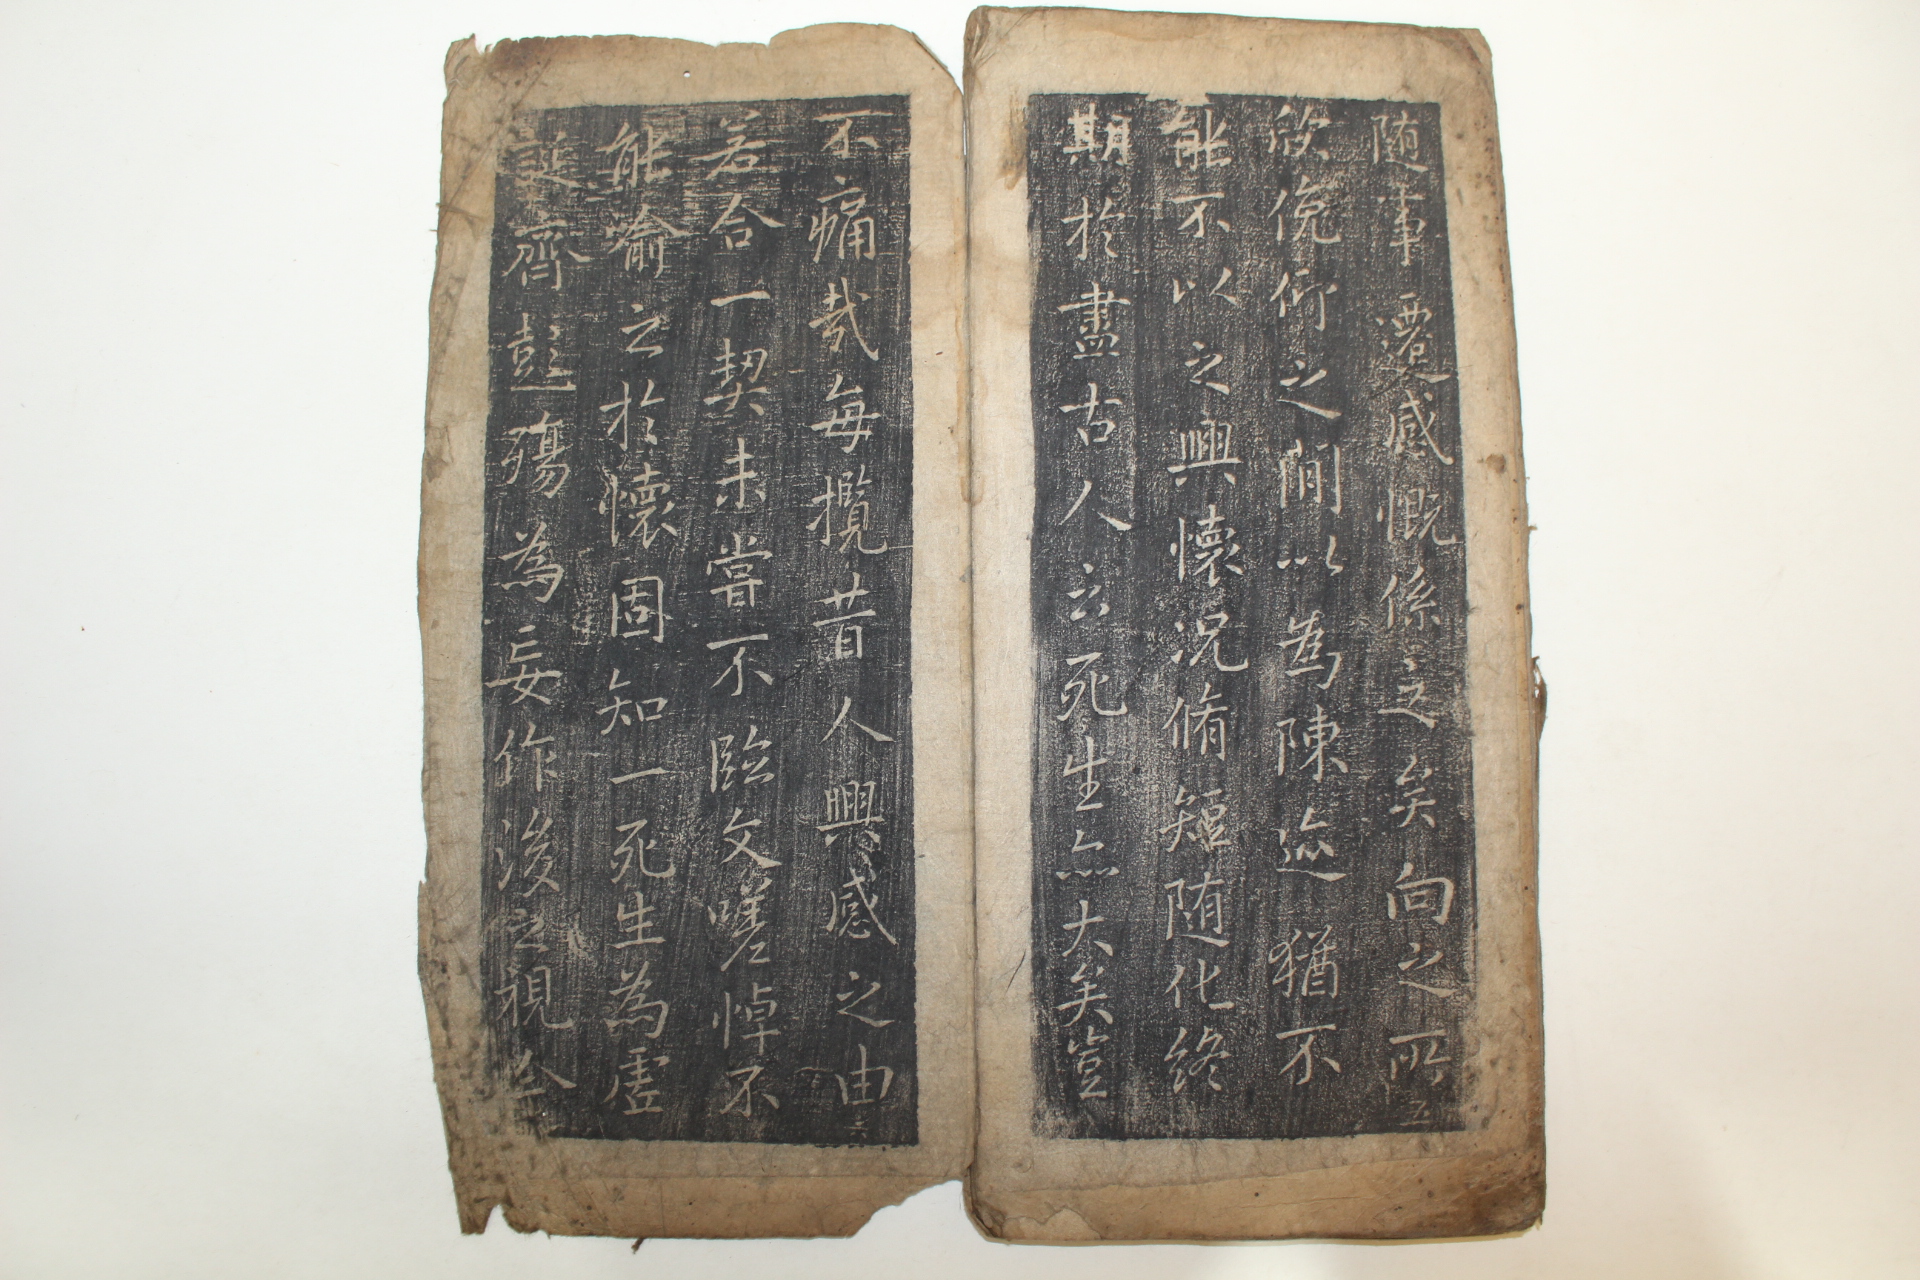 随事遷感慨係之矣向之所
五
欣俛仰之閒以為陳迹猶不
能不以之興懷況脩短随化終
期於盡古人云死生亦大矣豈
不痛哉每攬昔人興感之由
六
若合一契未嘗不臨文嗟悼不
能喻之於懷固知一死生為虛
誕齊彭殤為妄作後之視今